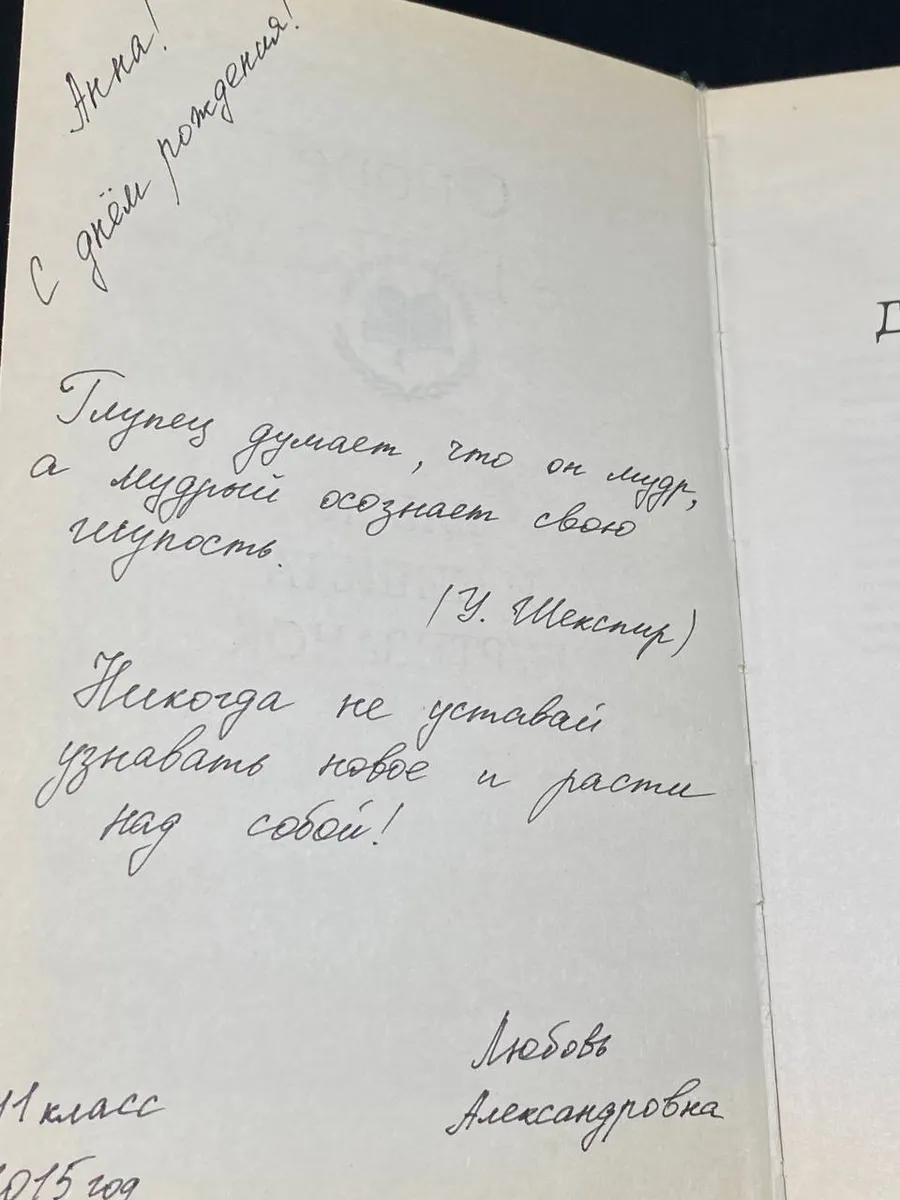 Анна!
С днём рождения!
Глупец думает, что он мудр,
а мудрый осознает свою
глупость.
(У. Шекспир)
Никогда не уставай
узнавать новое и расти
над собой!
Любовь
Александровна
11 класс
2015 год
Д